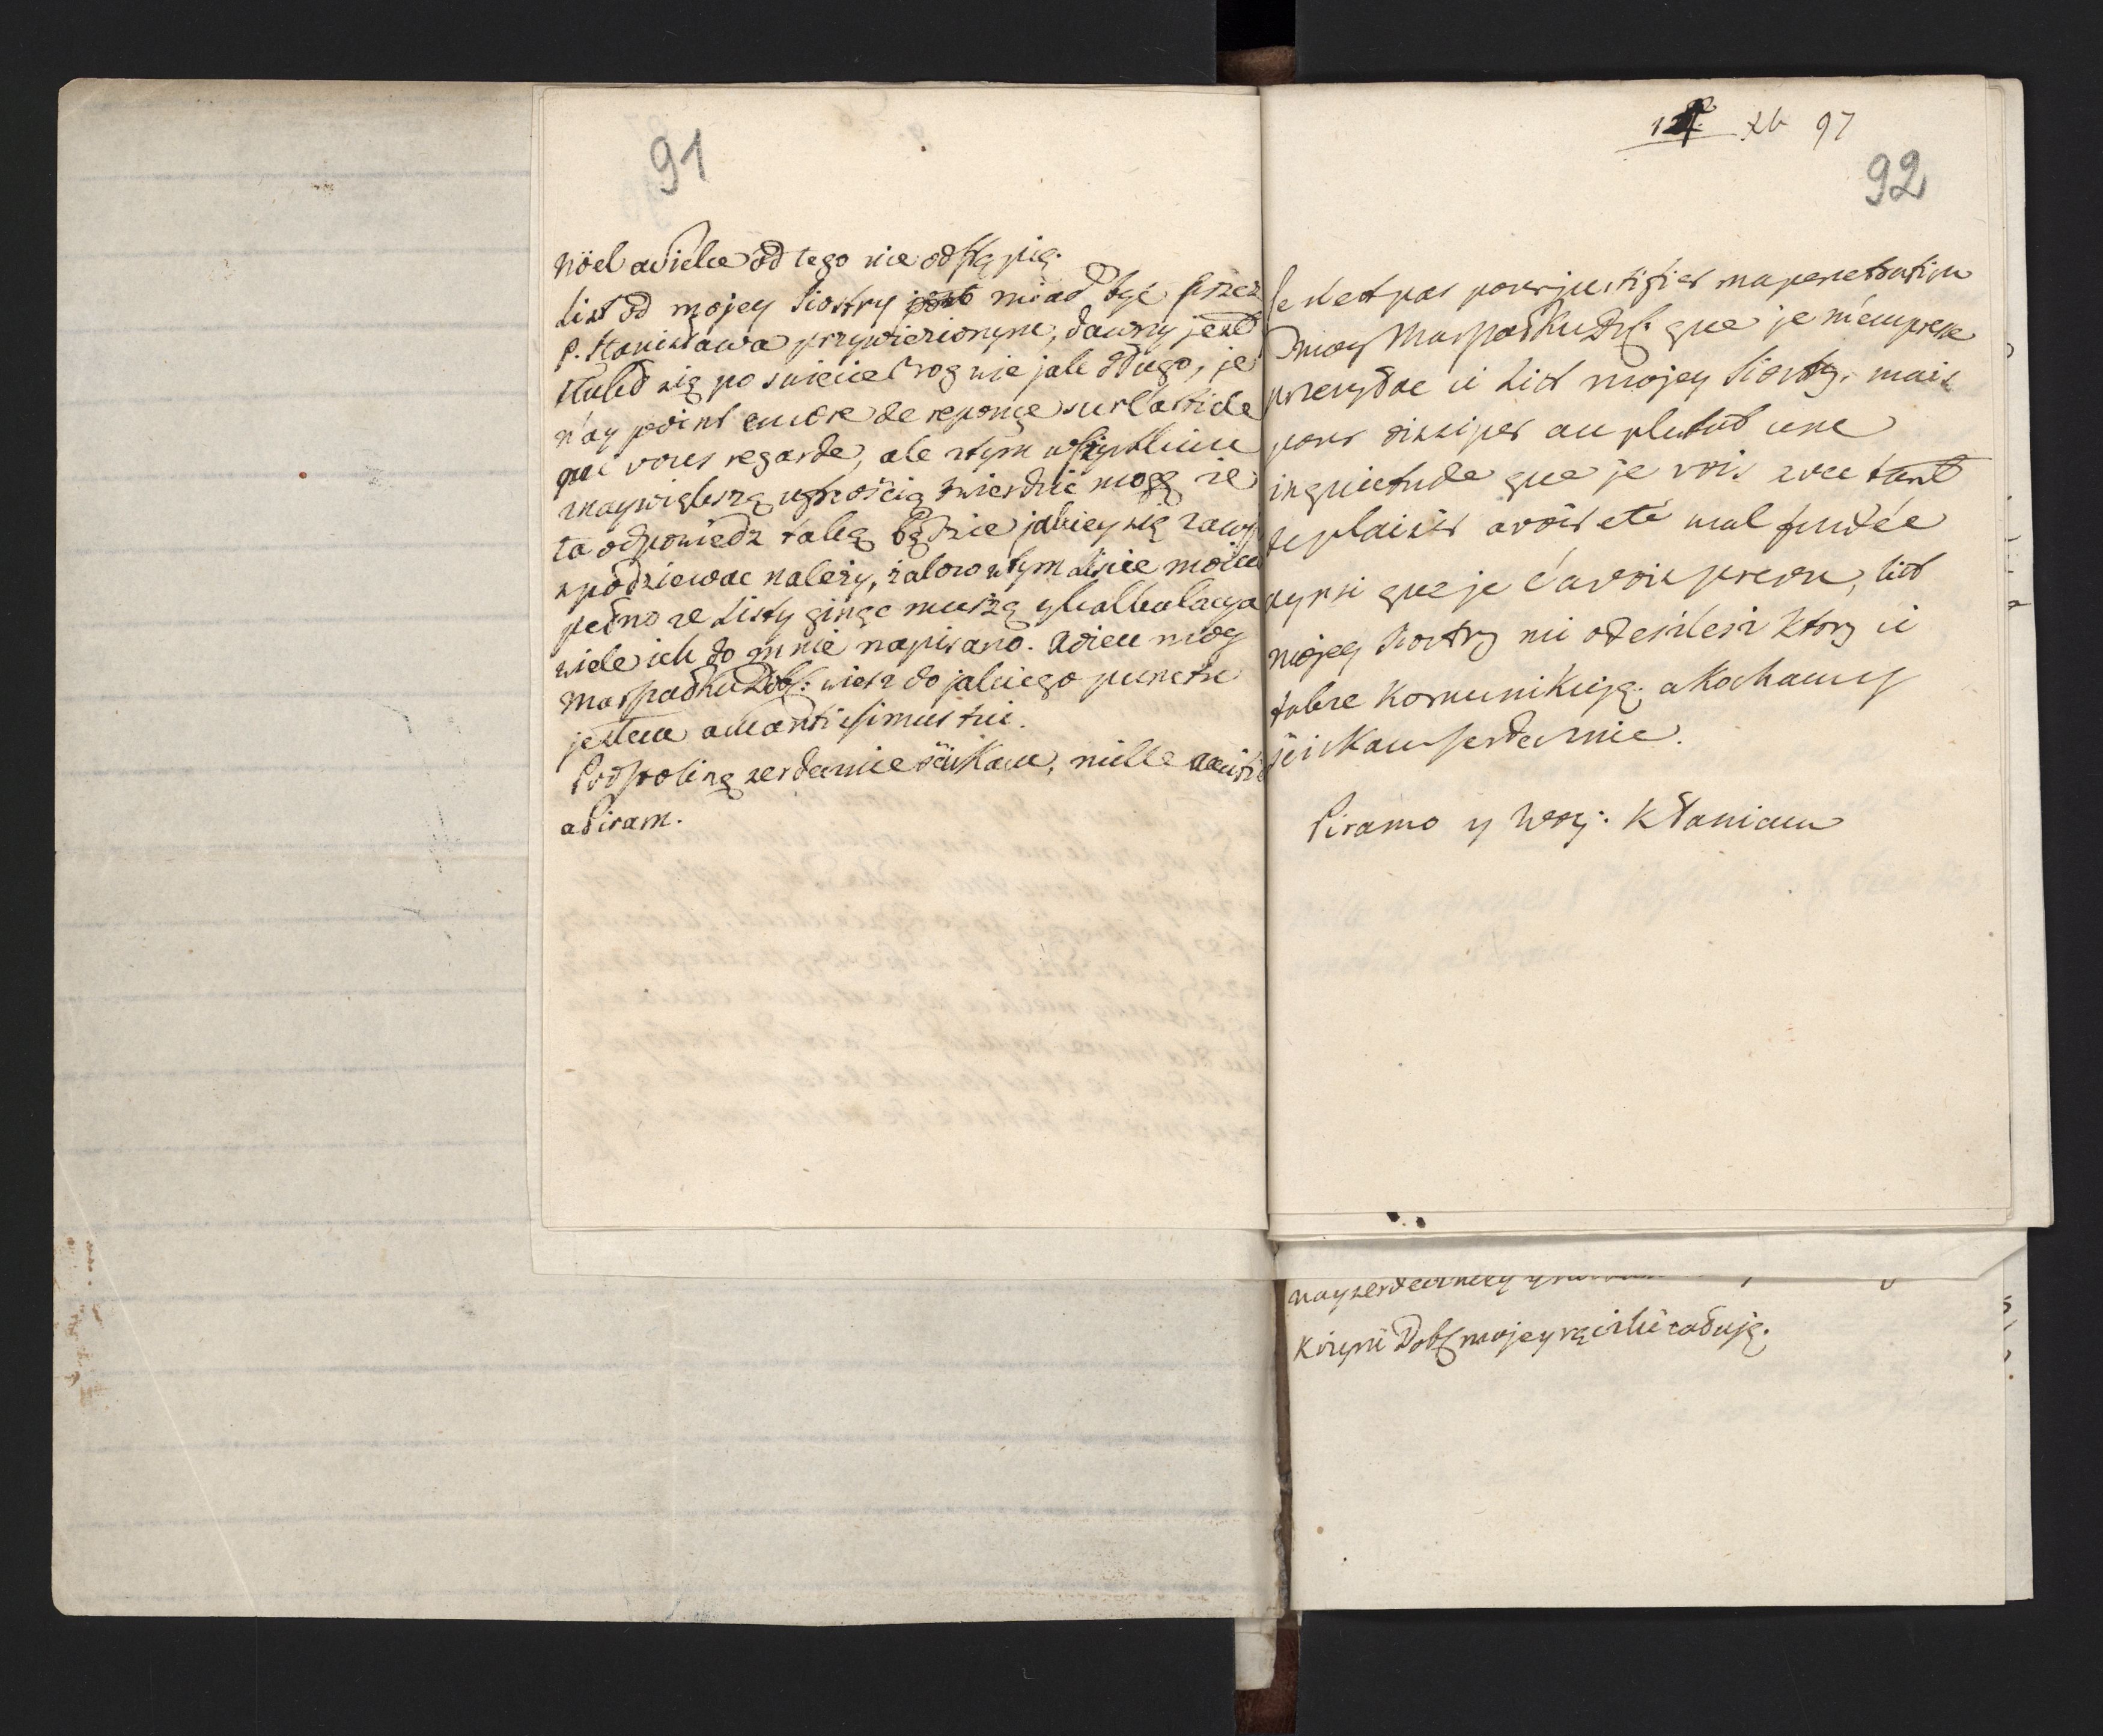 91
Nöel a wielce od tego nie odstąpię.
List od mojey Siostry miał być przez
P. Stanisława przywiezionym, dawny jest
tłukł się po świecie Bog wie jak długo, je
n'ay point encore de reponçe sur l'article
qui vous regarde, ale z tym wszystkim
z naywiększą ufnością twierdzić mogę że
ta odpowiedz taką będzie jakiey się zawsze
spodziewac należy, żałow w tym liscie moim
pełno ze Listy ginąc muszą y kalkulacya
wiele ich do mnie napisano. Adieu moy
Marszałku Dobr: wiesz do jakiego punctu
jestem amantissimus tui.
Podstoling serdecznie ściskam, mille amitié
a Piram.
12 Xb 97
92
Ce n'est pas pour justifier ma penetration
moy Marszałku Dob: que je m'empresse
przesyłac ci List mojey Siostry. mais
pour dissiper au plutot une
inquietude que je vois avec tant
de plaisir avoir eté mal fondée
ainsi que je l'avois prevu, list
mojey Siostry mi odeszlesz ktory ci
tobie Komunikuję. a Kochamy
ściskam serdecznie.
Piramo y Woy: Kłaniam
nayserdeczniey
Xiężnie Dobr mojey rączki całuję.